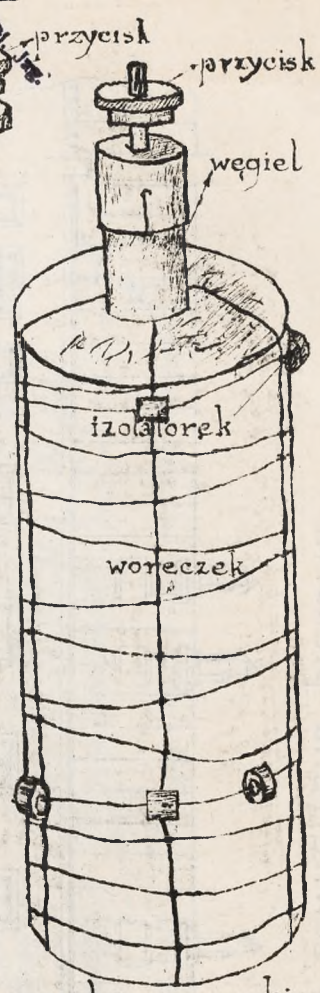 przycisk
przycisk
węgiel
izolatorek
woreczek